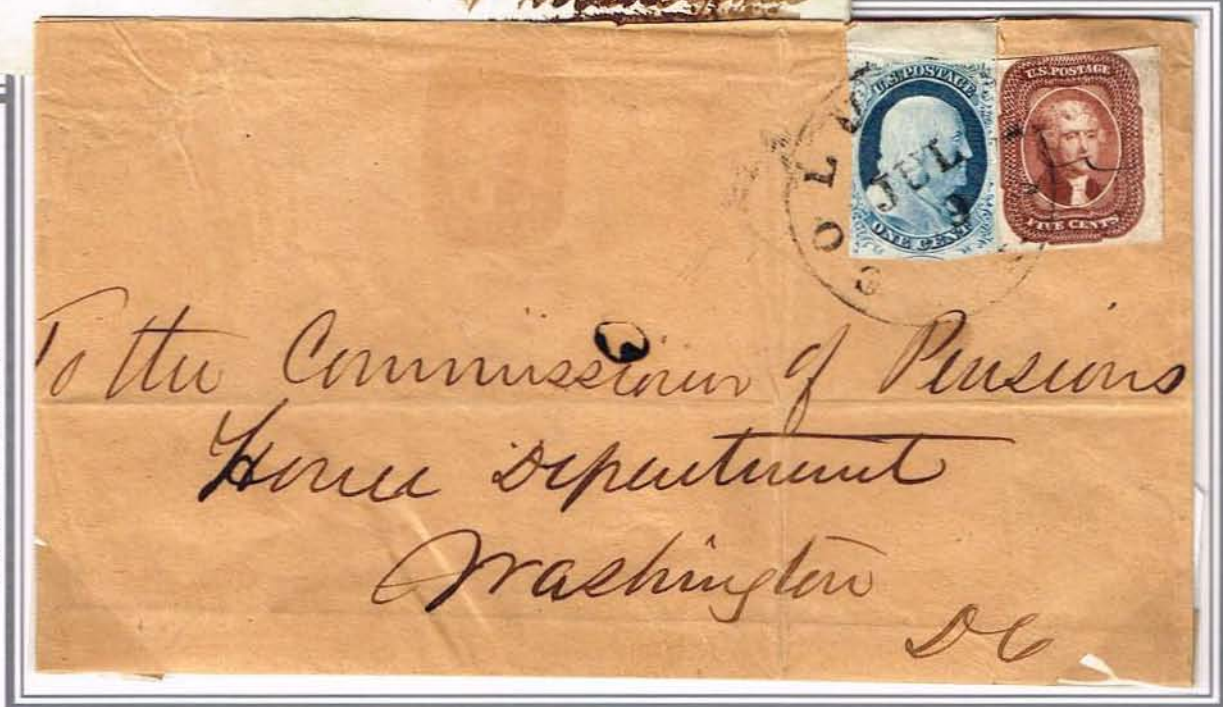 U.S. POSTAGE
ONE CENT
U.S. POSTAGE
FIVE CENTS
COLU
JUL
9
To the Commissioner of Pensions
Home Department
Washington
DC